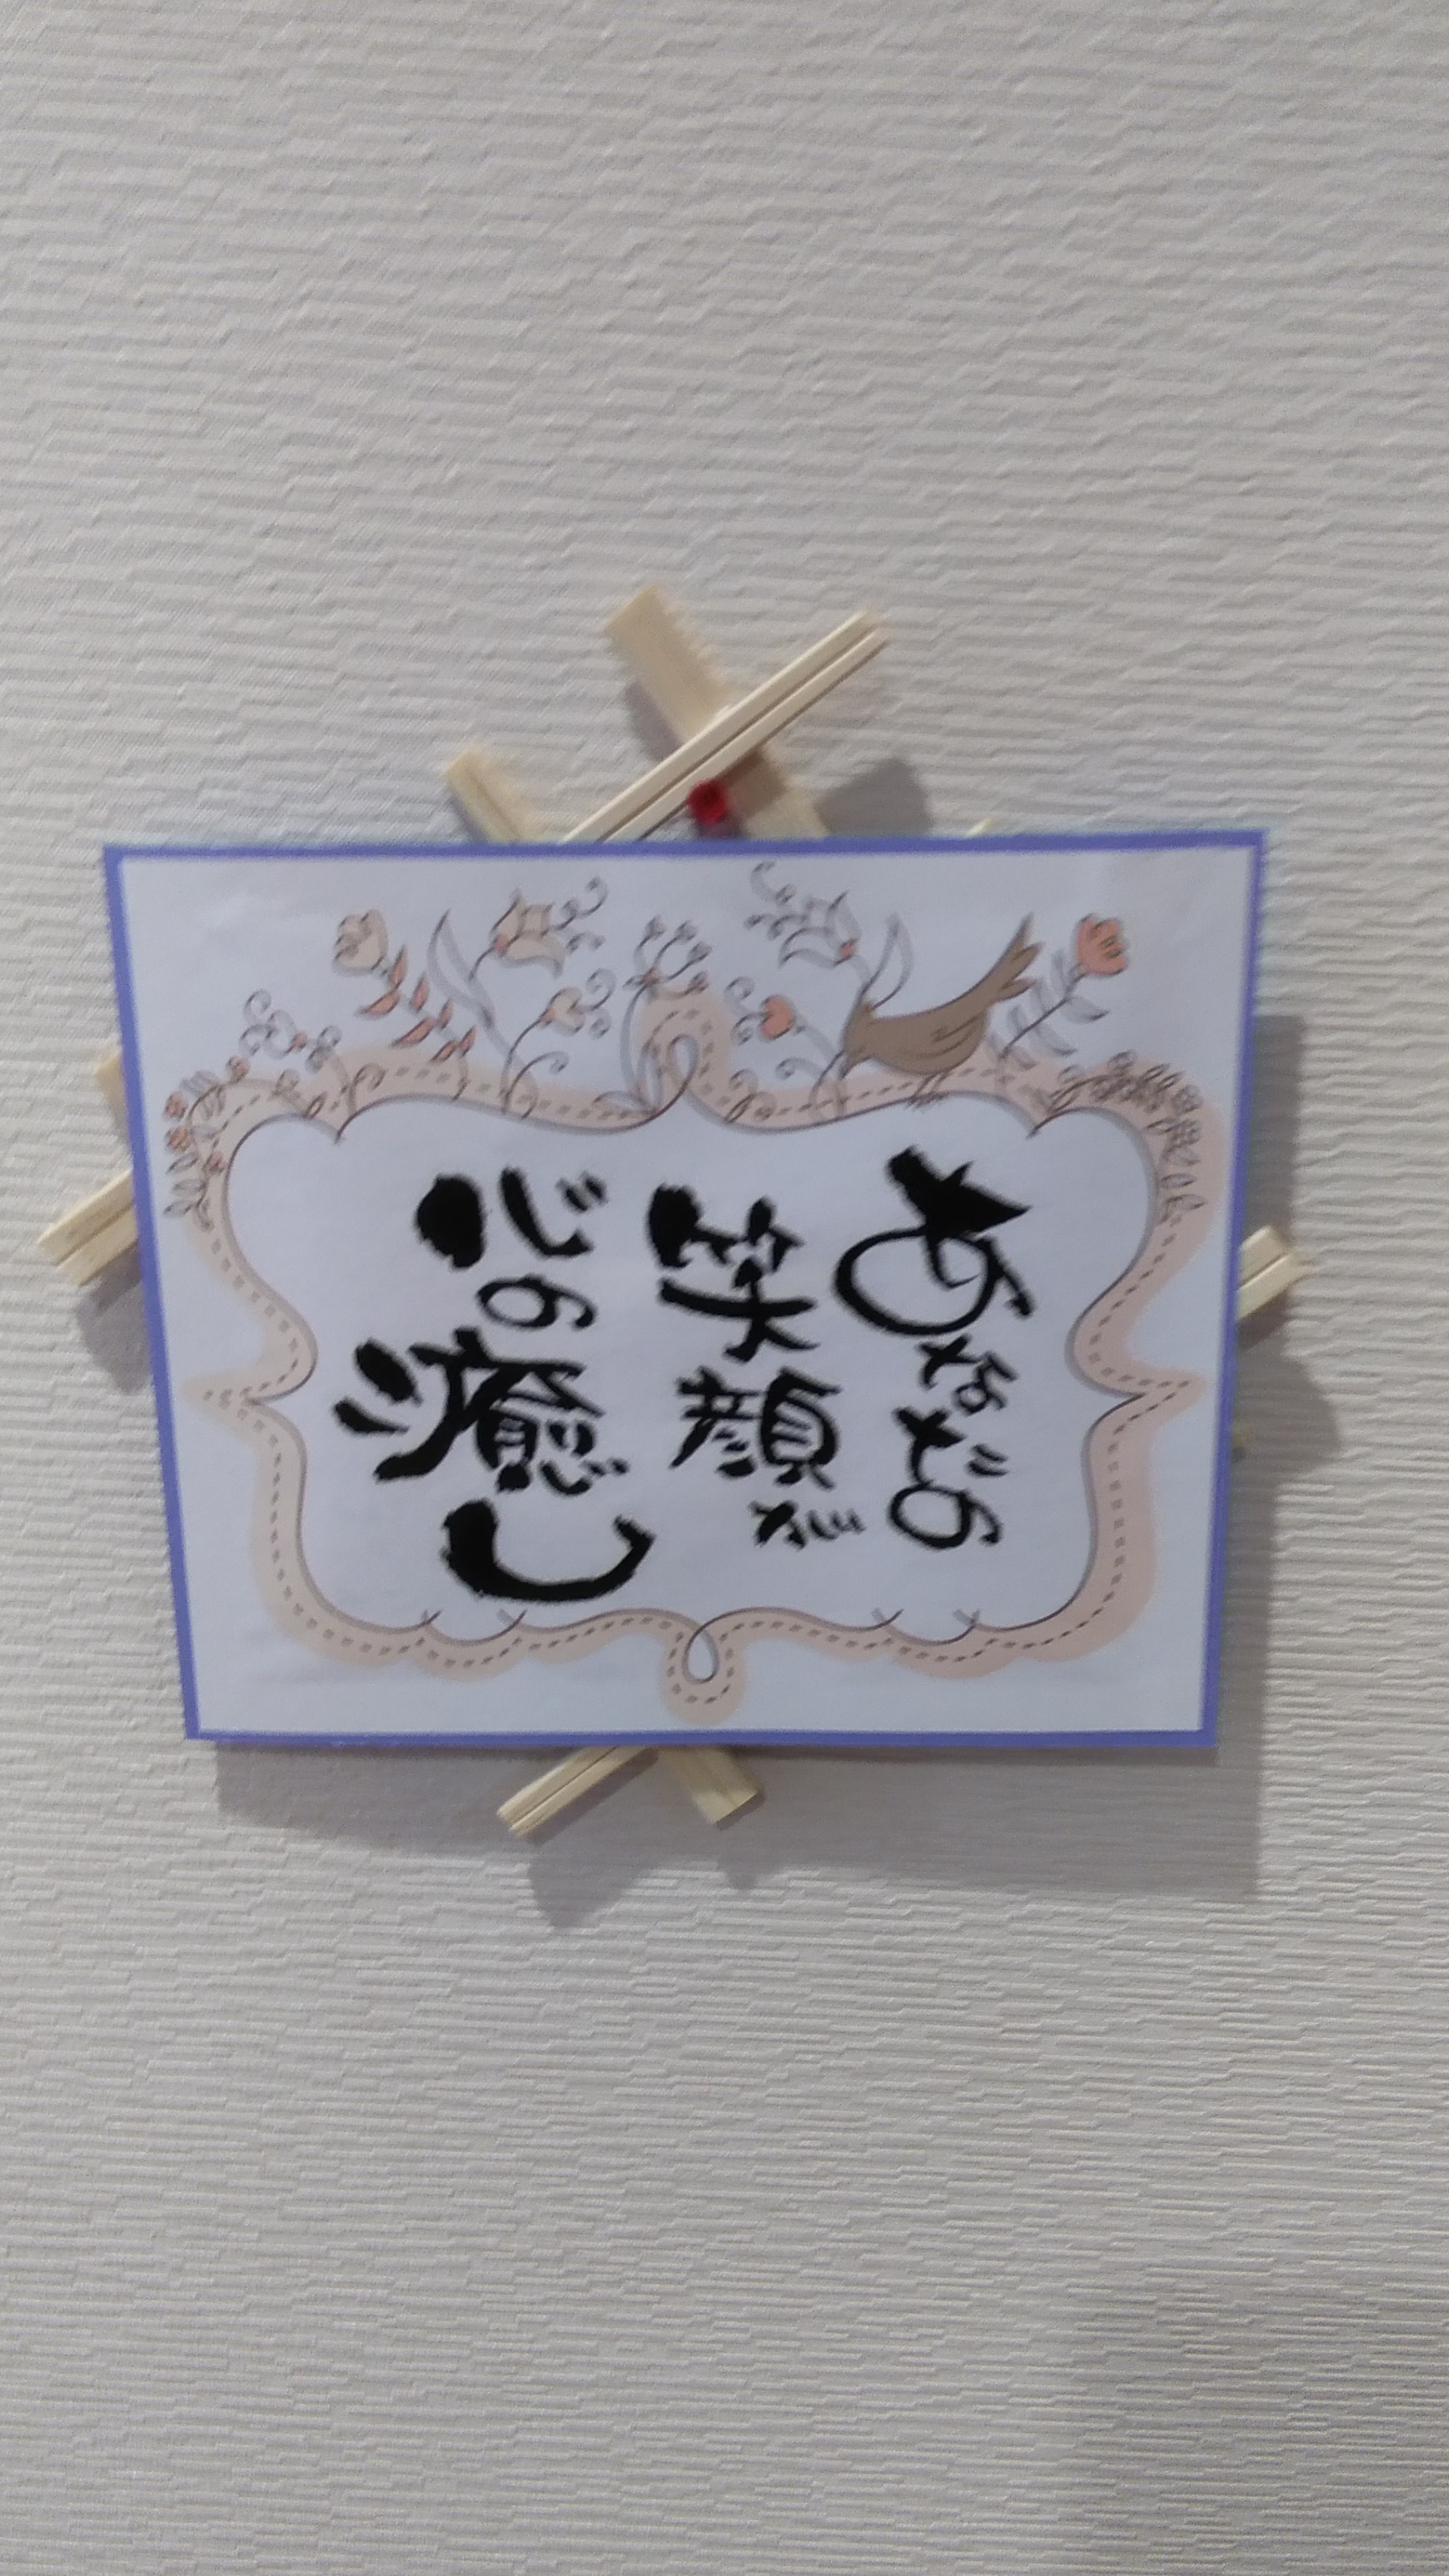 あなたの
笑顔が
心の癒し